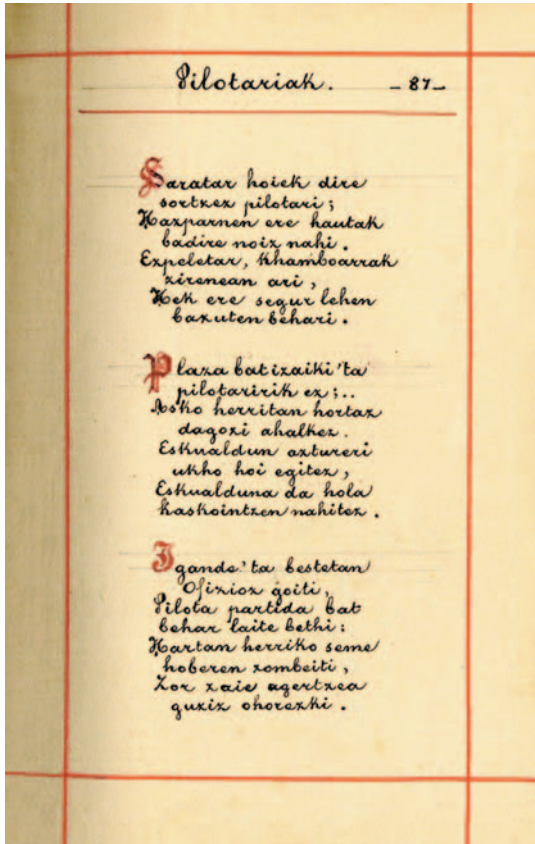 Pilotariak. - 87 -
Saratar hoiek dire
sortzez pilotari;
Hazparnen ere hautak
badire noiz nahi.
Ezpeletar, Khamboarrak
zirenean ari,
Hek ere segur lehen
bazuten behari.
Plaza bat izaiki 'ta
pilotaririk ez;..
Asko herritan hortaz
dagozi ahalkez.
Eskualdun aztureri
ukho hoi egitez,
Eskualduna da hola
kaskointzen nahitez.
Igande 'ta bestetan
Ofizioz goiti,
Pilota partida bat
behar laite bethi:
Hartan herriko seme
hoberen zombeiti,
Zor zaie agertzea
guziz ohorezki.